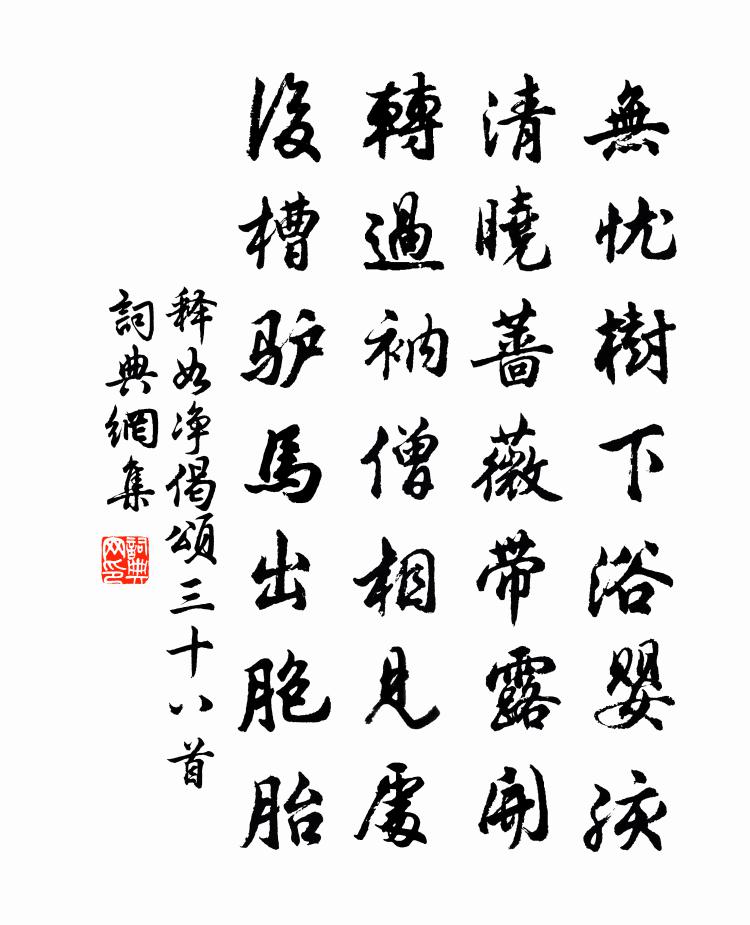 無忧樹下浴婴孩
清曉蔷薇带露開
轉過衲僧相見處
後槽驴馬出胞胎
释如净偈頌三十八首
詞典網集
詞典网印